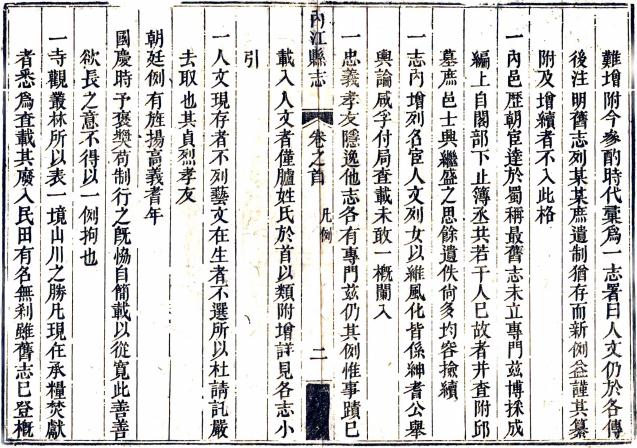 難增附今參酌時代彙爲一志署曰人文仍於各傳
後注明舊志列某某庶遺制猶存而新例益謹其纂
附及增續者不入此格
一內邑歷朝宦達於蜀稱最舊志未立專門茲博採成
編上自閣部下止簿丞共若干人巳故者并查附邱
墓庶邑士興繼盛之思餘遺佚尙多均容撿續
一志內增列名宦人文列女以維風化皆係紳耆公舉
輿論咸孚付局查載未敢一槪闌入
一忠義孝友隱逸他志各有專門茲仍其例惟事蹟巳
內江縣志 卷之首 凡例 二
載入人文者僅臚姓氏於首以類附增詳見各志小
引
一人文現存者不列藝文在生者不選所以杜請託嚴
去取也其貞烈孝友
朝廷例有旌揚高義耆年
國慶時予褒奬苟制行之旣恊自簡載以從寬此善善
欲長之意不得以一例拘也
一寺觀叢林所以表一境山川之勝凡現在承糧焚獻
者悉爲查載其廢入民田有名無刹雖舊志巳登槪